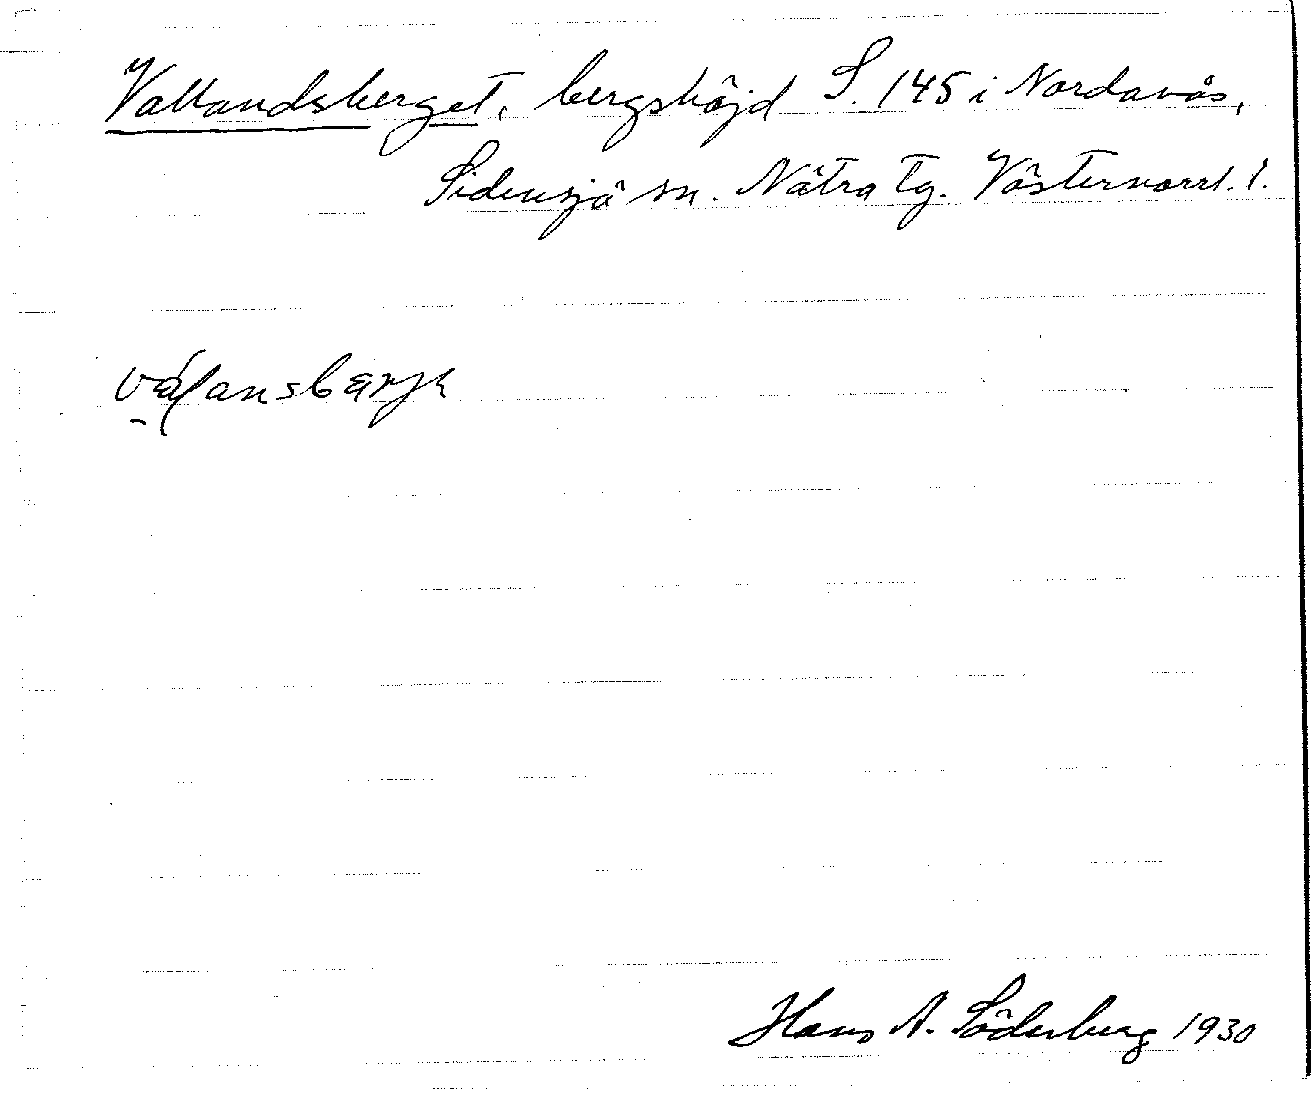 Vallandsberget, bergshöjd S. 145 i Nordanås,
Sidensjö sn. Nätra tg. Västernorrl. l.
Hans A. Söderberg 1930